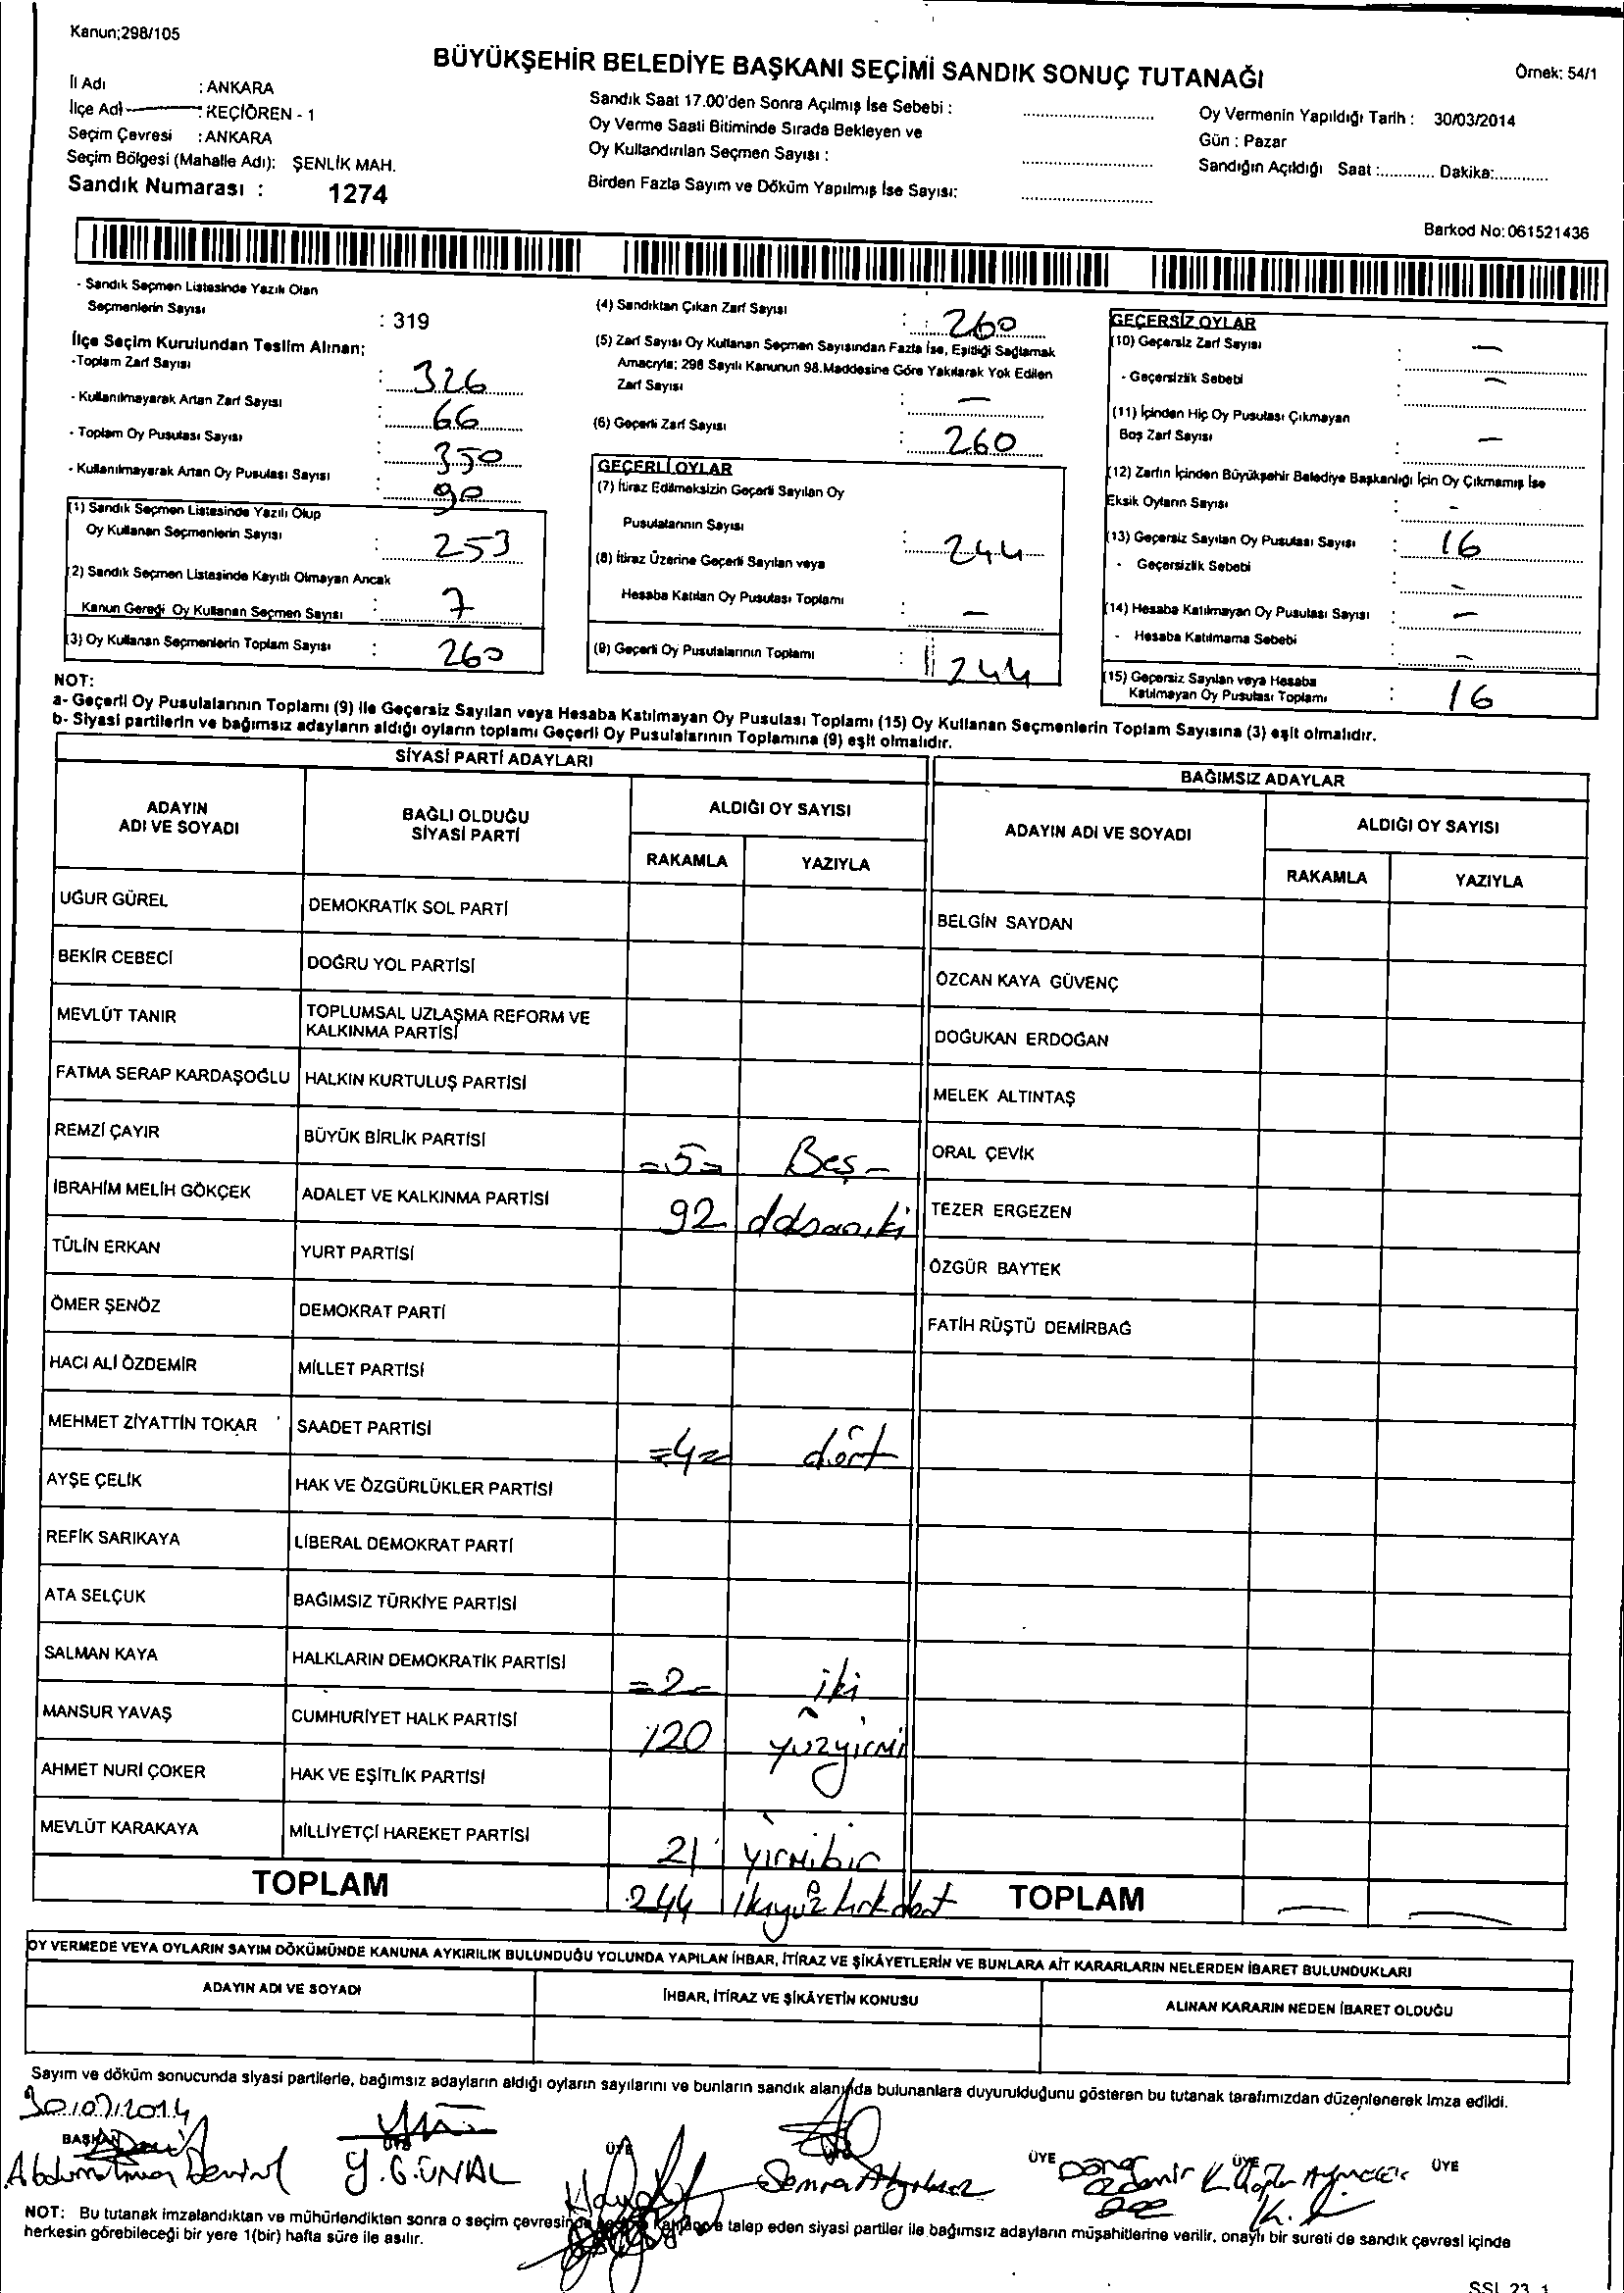 Kanun;298/105
BÜYÜKŞEHİR BELEDİYE BAŞKANI SEÇİMİ SANDIK SONUÇ TUTANAĞI
Örnek: 54/1
İl Adı : ANKARA
İlçe Adı : KEÇİÖREN - 1
Seçim Çevresi : ANKARA
Seçim Bölgesi (Mahalle Adı): ŞENLİK MAH.
Sandık Numarası : 1274
Sandık Saat 17.00'den Sonra Açılmış İse Sebebi :
Oy Verme Saati Bitiminde Sırada Bekleyen ve
Oy Kullandırılan Seçmen Sayısı :
Birden Fazla Sayım ve Döküm Yapılmış İse Sayısı:
Oy Vermenin Yapıldığı Tarih : 30/03/2014
Gün : Pazar
Sandığın Açıldığı Saat :............ Dakika:............
Barkod No:061521436
- Sandık Seçmen Listesinde Yazılı Olan
Seçmenlerin Sayısı : 319
İlçe Seçim Kurulundan Teslim Alınan;
-Toplam Zarf Sayısı : 326
- Kullanılmayarak Artan Zarf Sayısı : 66
- Toplam Oy Pusulası Sayısı : 350
- Kullanılmayarak Artan Oy Pusulası Sayısı : 90
(1) Sandık Seçmen Listesinde Yazılı Olup
Oy Kullanan Seçmenlerin Sayısı : 253
(2) Sandık Seçmen Listesinde Kayıtlı Olmayan Ancak
Kanun Gereği Oy Kullanan Seçmen Sayısı : 7
(3) Oy Kullanan Seçmenlerin Toplam Sayısı : 260
(4) Sandıktan Çıkan Zarf Sayısı : 260
(5) Zarf Sayısı Oy Kullanan Seçmen Sayısından Fazla İse, Eşitliği Sağlamak
Amacıyla; 298 Sayılı Kanunun 98.Maddesine Göre Yakılarak Yok Edilen
Zarf Sayısı : —
(6) Geçerli Zarf Sayısı : 260
GEÇERLİ OYLAR
(7) İtiraz Edilmeksizin Geçerli Sayılan Oy
Pusulalarının Sayısı : 244
(8) İtiraz Üzerine Geçerli Sayılan veya
Hesaba Katılan Oy Pusulası Toplamı : —
(9) Geçerli Oy Pusulalarının Toplamı : 244
GEÇERSİZ OYLAR
(10) Geçersiz Zarf Sayısı : —
- Geçersizlik Sebebi : —
(11) İçinden Hiç Oy Pusulası Çıkmayan
Boş Zarf Sayısı : —
(12) Zarfın İçinden Büyükşehir Belediye Başkanlığı İçin Oy Çıkmamış İse
Eksik Oyların Sayısı : -
(13) Geçersiz Sayılan Oy Pusulası Sayısı : 16
- Geçersizlik Sebebi : -
(14) Hesaba Katılmayan Oy Pusulası Sayısı : —
- Hesaba Katılmama Sebebi : —
(15) Geçersiz Sayılan veya Hesaba
Katılmayan Oy Pusulası Toplamı : 16
NOT:
a- Geçerli Oy Pusulalarının Toplamı (9) ile Geçersiz Sayılan veya Hesaba Katılmayan Oy Pusulası Toplamı (15) Oy Kullanan Seçmenlerin Toplam Sayısına (3) eşit olmalıdır.
b- Siyasi partilerin ve bağımsız adayların aldığı oyların toplamı Geçerli Oy Pusulalarının Toplamına (9) eşit olmalıdır.
SİYASİ PARTİ ADAYLARI
ADAYIN ADI VE SOYADI BAĞLI OLDUĞU SİYASİ PARTİ ALDIĞI OY SAYISI
RAKAMLA YAZIYLA
UĞUR GÜREL DEMOKRATİK SOL PARTİ
BEKİR CEBECİ DOĞRU YOL PARTİSİ
MEVLÜT TANIR TOPLUMSAL UZLAŞMA REFORM VE
KALKINMA PARTİSİ
FATMA SERAP KARDAŞOĞLU HALKIN KURTULUŞ PARTİSİ
REMZİ ÇAYIR BÜYÜK BİRLİK PARTİSİ =5= Beş-
İBRAHİM MELİH GÖKÇEK ADALET VE KALKINMA PARTİSİ 92
TÜLİN ERKAN YURT PARTİSİ
ÖMER ŞENÖZ DEMOKRAT PARTİ
HACI ALİ ÖZDEMİR MİLLET PARTİSİ
MEHMET ZİYATTİN TOKAR SAADET PARTİSİ =4= dört
AYŞE ÇELİK HAK VE ÖZGÜRLÜKLER PARTİSİ
REFİK SARIKAYA LİBERAL DEMOKRAT PARTİ
ATA SELÇUK BAĞIMSIZ TÜRKİYE PARTİSİ
SALMAN KAYA HALKLARIN DEMOKRATİK PARTİSİ =2= iki
MANSUR YAVAŞ CUMHURİYET HALK PARTİSİ 120 yüzyirmi
AHMET NURİ ÇOKER HAK VE EŞİTLİK PARTİSİ
MEVLÜT KARAKAYA MİLLİYETÇİ HAREKET PARTİSİ 21 yirmibir
TOPLAM 244 ikiyüz kırkdört
BAĞIMSIZ ADAYLAR
ADAYIN ADI VE SOYADI ALDIĞI OY SAYISI
RAKAMLA YAZIYLA
BELGİN SAYDAN
ÖZCAN KAYA GÜVENÇ
DOĞUKAN ERDOĞAN
MELEK ALTINTAŞ
ORAL ÇEVİK
TEZER ERGEZEN
ÖZGÜR BAYTEK
FATİH RÜŞTÜ DEMİRBAĞ
TOPLAM — —
OY VERMEDE VEYA OYLARIN SAYIM DÖKÜMÜNDE KANUNA AYKIRILIK BULUNDUĞU YOLUNDA YAPILAN İHBAR, İTİRAZ VE ŞİKÂYETLERİN VE BUNLARA AİT KARARLARIN NELERDEN İBARET BULUNDUKLARI
ADAYIN ADI VE SOYADI İHBAR, İTİRAZ VE ŞİKÂYETİN KONUSU ALINAN KARARIN NEDEN İBARET OLDUĞU
Sayım ve döküm sonucunda siyasi partilerle, bağımsız adayların aldığı oyların sayılarını ve bunların sandık alanında bulunanlara duyurulduğunu gösteren bu tutanak tarafımızdan düzenlenerek imza edildi.
BAŞKAN ÜYE ÜYE ÜYE ÜYE ÜYE ÜYE
Y.G.ÜNAL Semra
NOT: Bu tutanak imzalandıktan ve mühürlendikten sonra o seçim çevresinde talep eden siyasi partiler ile bağımsız adayların müşahitlerine verilir, onaylı bir sureti de sandık çevresi içinde
herkesin görebileceği bir yere 1(bir) hafta süre ile asılır.
SSL 23_1